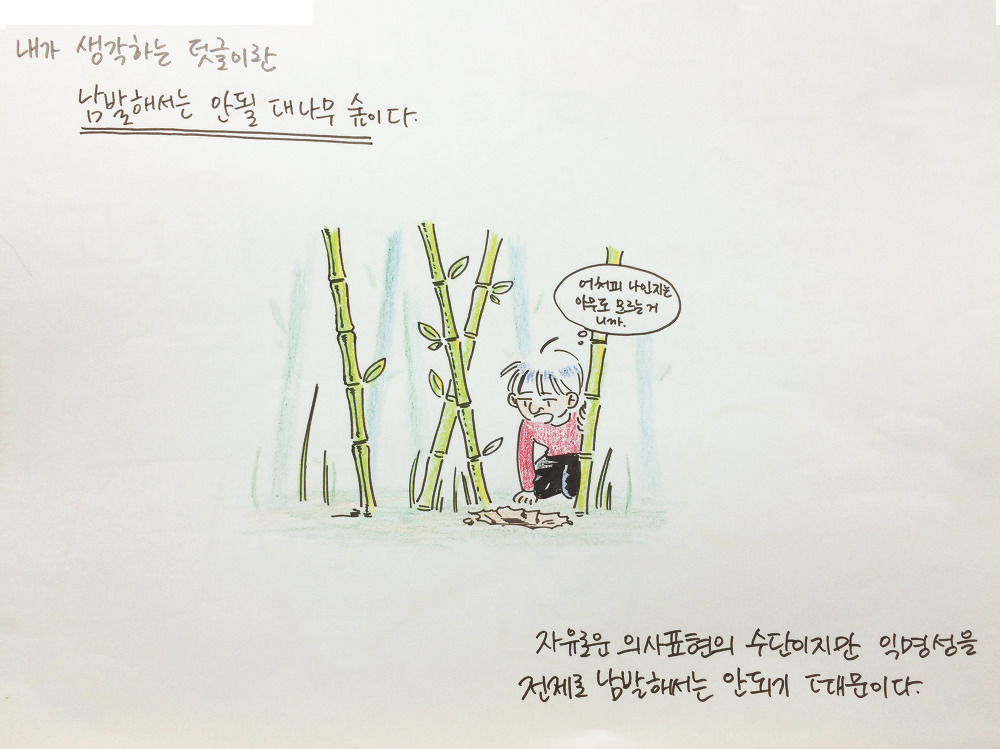 내가 생각하는 덧글이란
남발해서는 안될 대나무 숲이다.
어처피 나인지는
아무도 모르는거
니까.
자유로운 의사표현의 수단이지만 익명성을
전제로 남발해서는 안되기 때문이다.